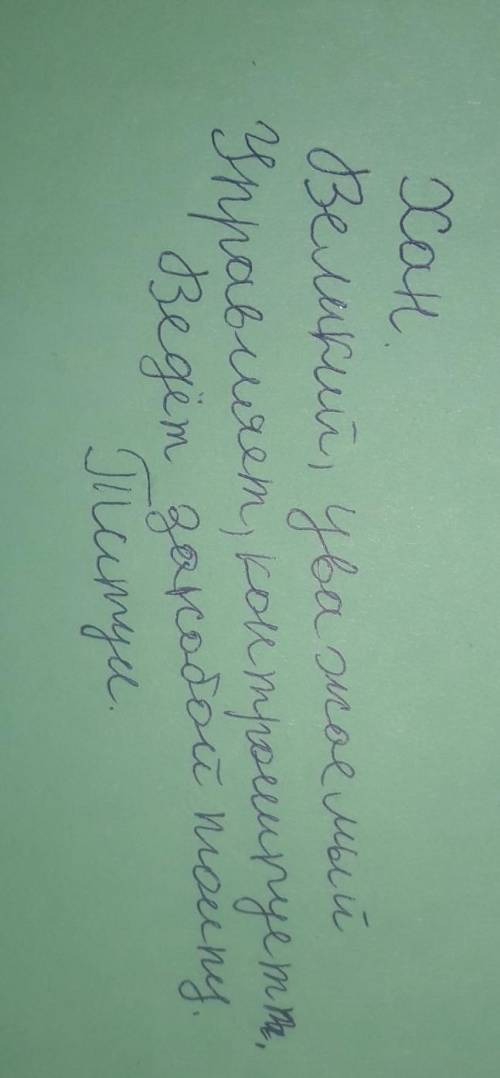 Хан.
Великий, уважаемый
Управляет, контролирует,
Ведёт за собой толпу.
Титул.